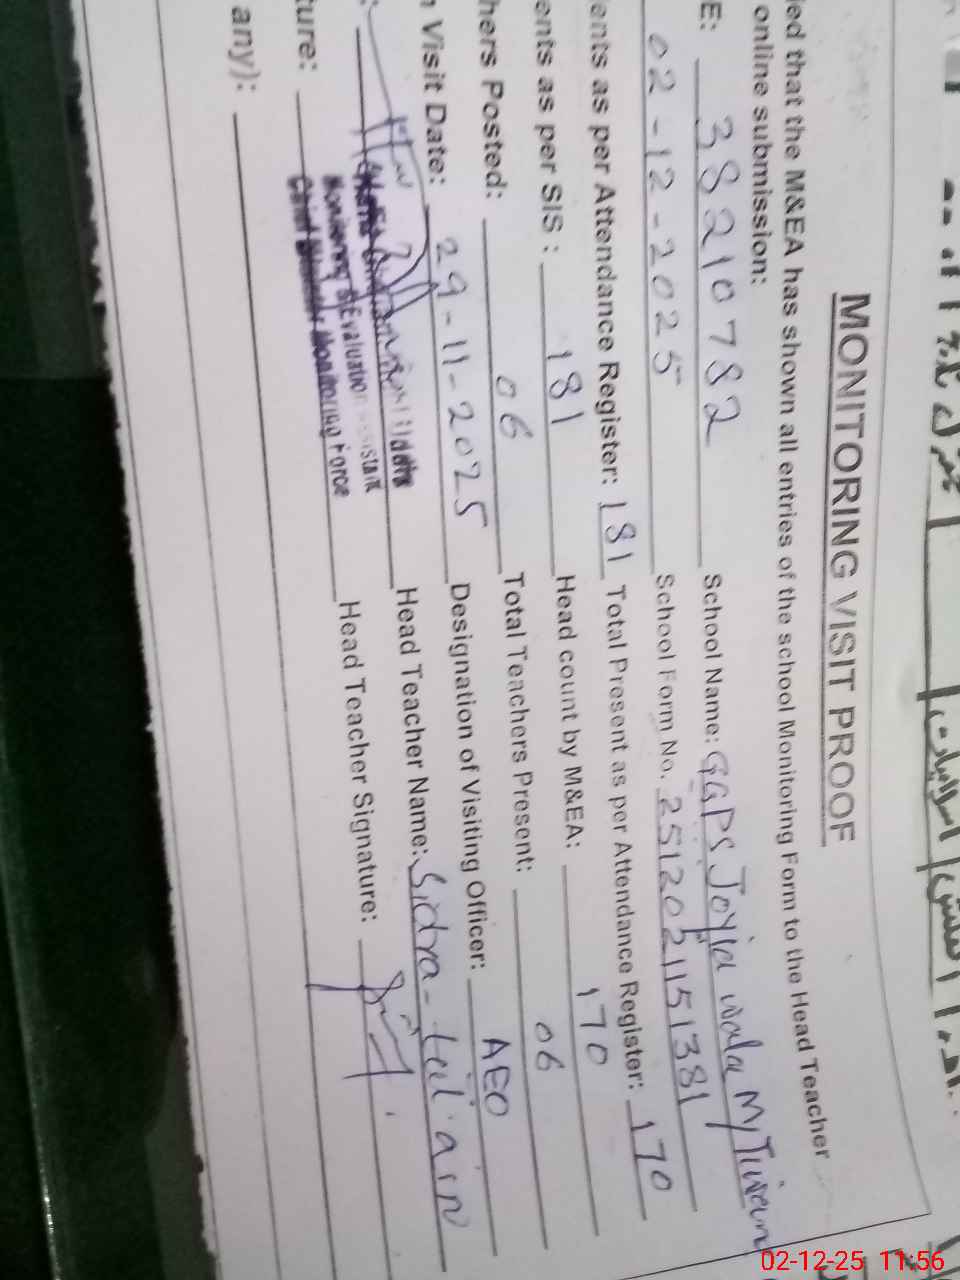 MONITORING VISIT PROOF
ied that the M&EA has shown all entries of the school Monitoring Form to the Head Teacher
online submission:
E: 38210782 School Name: GGPS Joyia wala My Tiwan
02-12-2025 School Form No. 251202115 1381
ents as per Attendance Register: 181 Total Present as per Attendance Register: 170
ents as per SIS: 181 Head count by M&EA: 170
hers Posted: 06 Total Teachers Present: 06
n Visit Date: 29-11-2025 Designation of Visiting Officer: AEO
Head Teacher Name: Sidra-tul-ain
ture: Head Teacher Signature:
Monitoring & Evaluation Assistant
Chief Minister Monitoring Force
any):
02-12-25 11:56